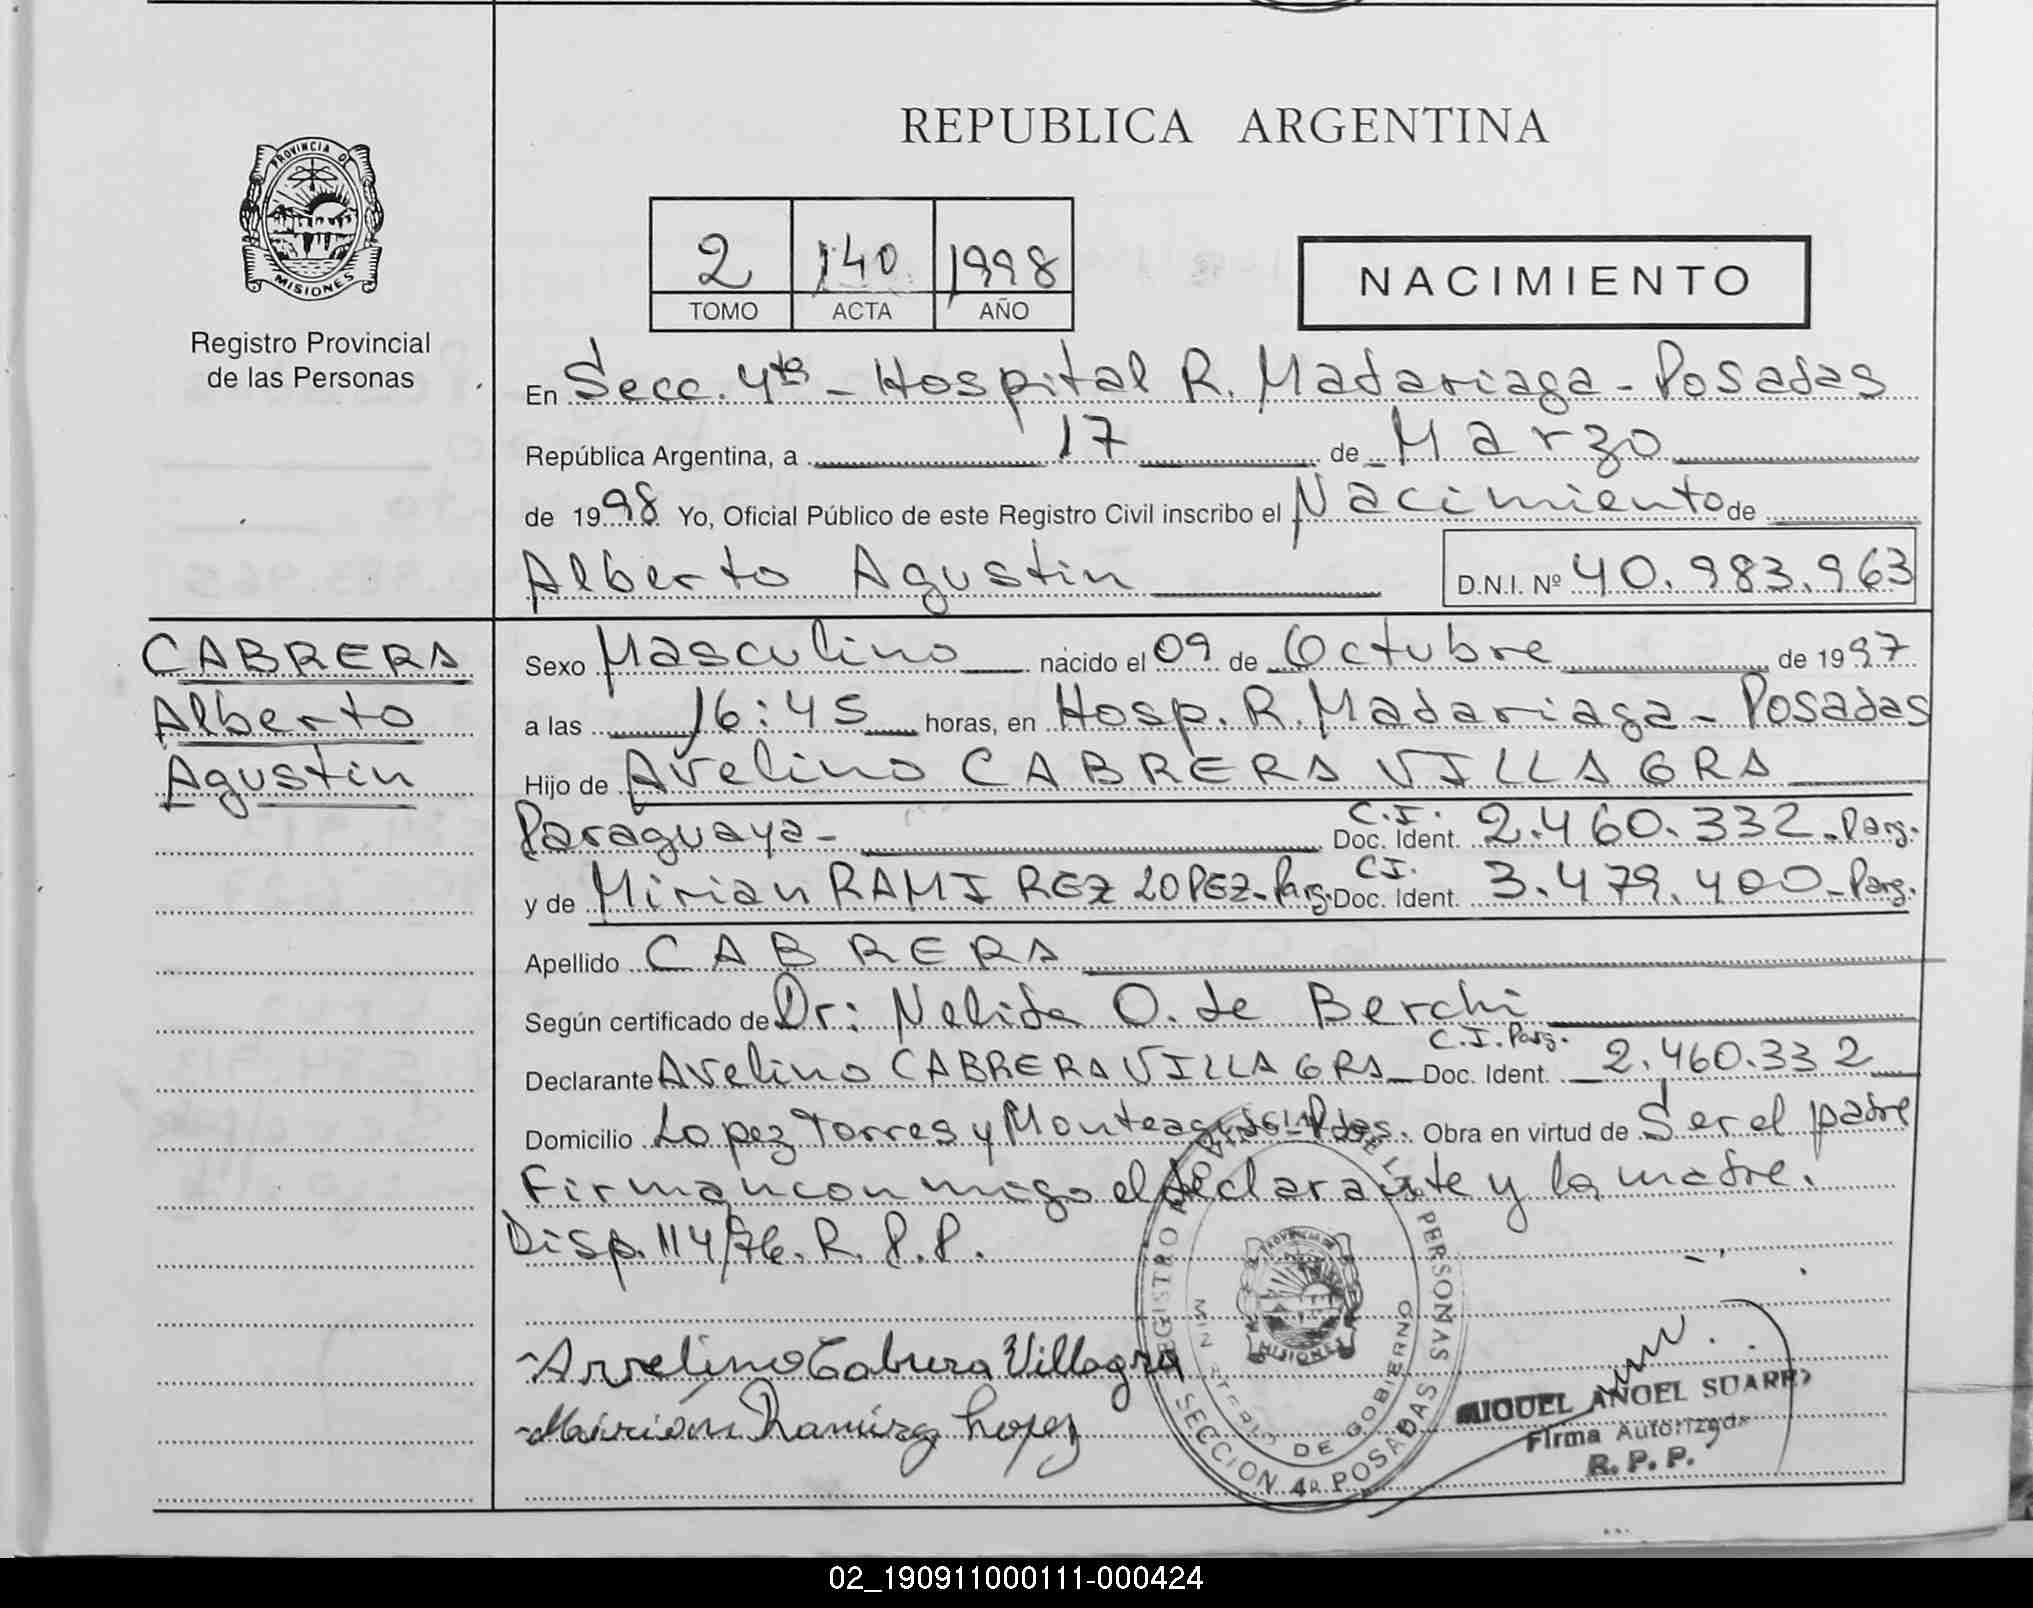 REPUBLICA ARGENTINA
PROVINCIA DE
MISIONES
Registro Provincial
de las Personas
2 140 1998
TOMO ACTA AÑO
NACIMIENTO
En Secc. 4ta - Hospital R. Madariaga - Posadas
República Argentina, a 17 de Marzo
de 1998 Yo, Oficial Público de este Registro Civil inscribo el Nacimiento de
Alberto Agustin D.N.I. Nº 40.983.963
CABRERA
Alberto
Agustin
Sexo Masculino nacido el 09 de Octubre de 1997
a las 16:45 horas, en Hosp. R. Madariaga - Posadas
Hijo de Avelino CABRERA VILLAGRA
Paraguaya - C.I. Doc. Ident. 2.460.332 - Parg.
y de Mirian RAMIREZ LOPEZ - Parg. C.I. Doc. Ident. 3.479.400 - Parg.
Apellido CABRERA
Según certificado de Dr: Nelida O. de Berchi
Declarante Avelino CABRERA VILLAGRA C.I. Parg. Doc. Ident. 2.460.332
Domicilio Lopez Torres y Monteagudo - Pdas. Obra en virtud de Ser el padre
Firman conmigo el declarante y la madre.
Disp. 114/76. R.P.P.
Avelino Cabrera Villagra
Mirian Ramirez Lopez
REGISTRO PROVINCIAL DE LAS PERSONAS
MINISTERIO DE GOBIERNO
MISIONES
SECCION 4a POSADAS
MIGUEL ANGEL SUAREZ
Firma Autorizada
R. P. P.
02_190911000111-000424